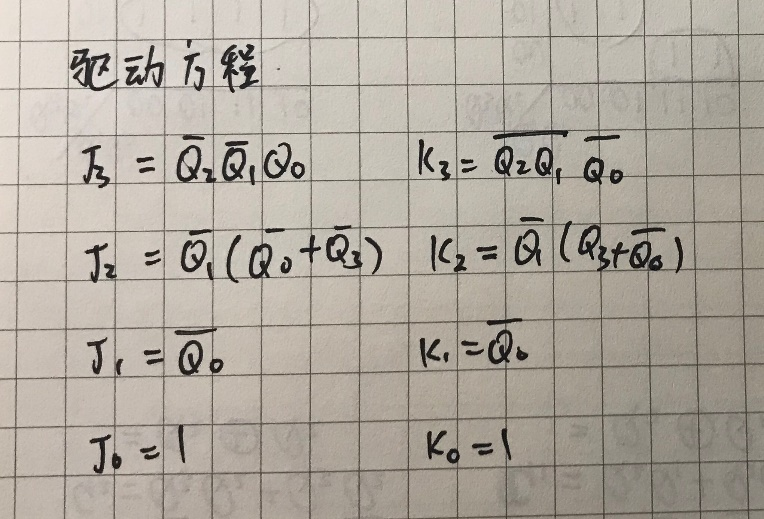 驱动方程
J₃ = Q̅₂Q̅₁Q₀ K₃ = \overline{Q₂Q₁} \overline{Q₀}
J₂ = Q̅₁(Q̅₀+Q̅₃) K₂ = Q̅₁(Q₃+Q̅₀)
J₁ = Q̅₀ K₁ = Q̅₀
J₀ = 1 K₀ = 1